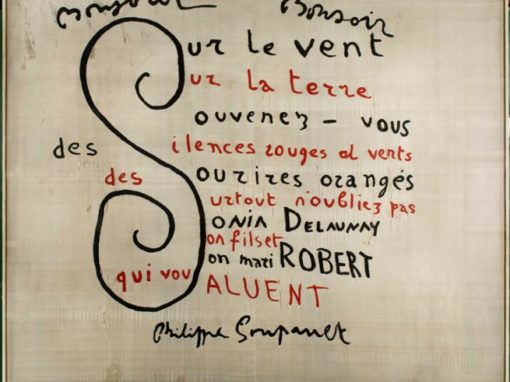 Bonsoir
Sur le vent
Sur la terre
Souvenez - vous
des Silences rouges et verts
des Sourires orangés
Surtout n'oubliez pas
SONIA DELAUNAY
Son fils et
Son mari ROBERT
qui vou SALUENT
Philippe Soupault